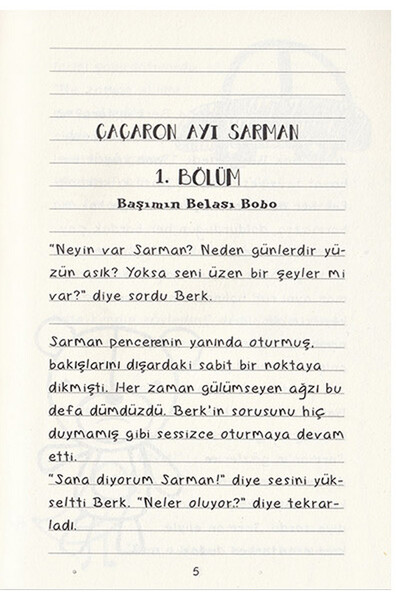 ÇAÇARON AYI SARMAN
1. BÖLÜM
Başımın Belası Bobo
"Neyin var Sarman? Neden günlerdir yü-
zün asık? Yoksa seni üzen bir şeyler mi
var?" diye sordu Berk.
Sarman pencerenin yanında oturmuş,
bakışlarını dışardaki sabit bir noktaya
dikmişti. Her zaman gülümseyen ağzı bu
defa dümdüzdü. Berk'in sorusunu hiç
duymamış gibi sessizce oturmaya devam
etti.
"Sana diyorum Sarman!" diye sesini yük-
seltti Berk. "Neler oluyor?" diye tekrar-
ladı.
5